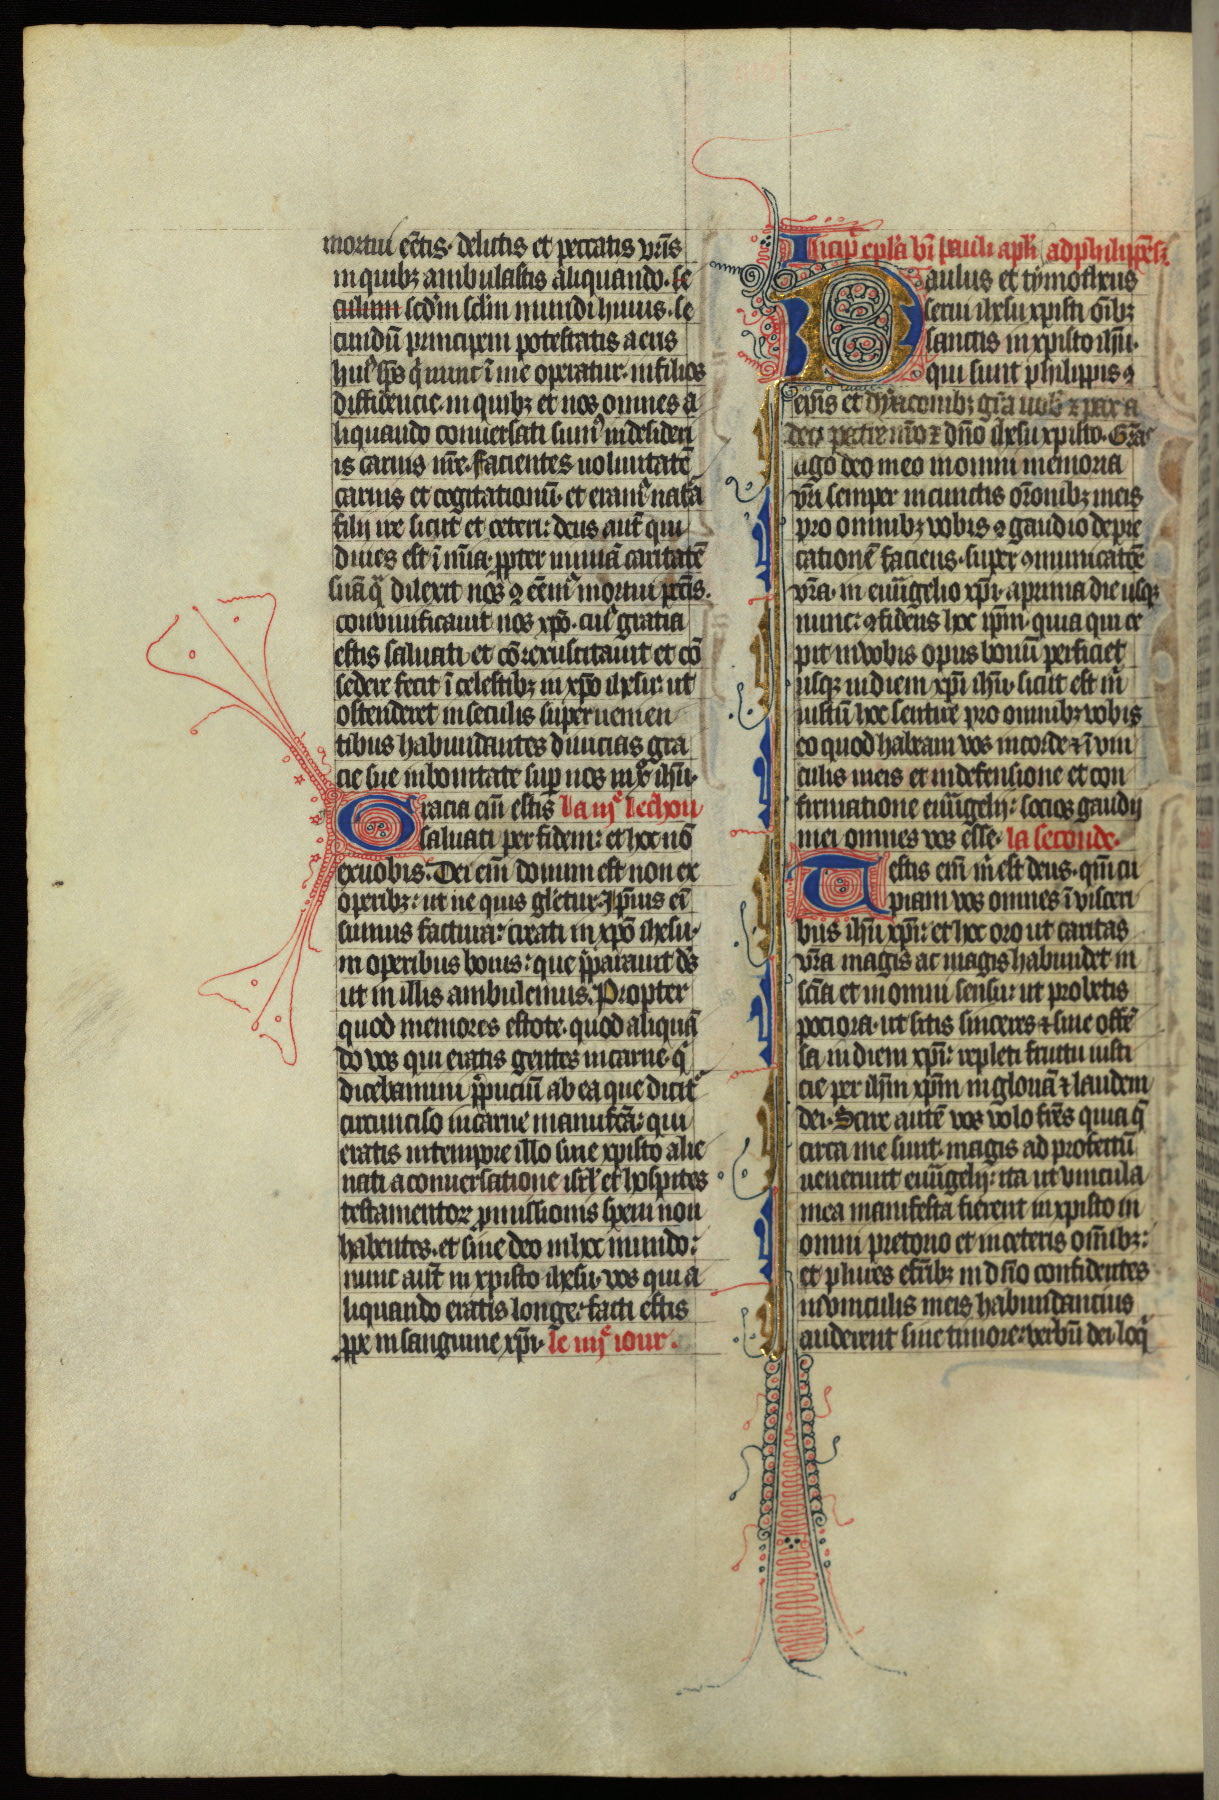 mortui eētis. delictis et peccatis vr̄is
in quibꝫ ambulastis aliquando. se
culum scdm sclm mundi huius. se
cundū principem potestatis aeris
hui⁹ sp̄s q̄ nunc ī me operatur. in filios
diffidencie. in quibꝫ et nos omnes a
liquando conuersati sum⁹ in desideri
is carnis nr̄e. facientes uoluntatē
carnis et cogitationū. et eram⁹ nat̄a
filij ire sicut et ceteri: deus aut̄ qui
diues est ī mīa. ꝓpter nimiā caritatē
suā q̄ dilexit nos ꝯ eēm⁹ mortui pc̄tis.
conuiuificauit nos xp̄o. cui⁹ gratia
estis saluati et cōrexuscitauit et cō
sedere fecit ī celestibꝫ in xp̄o ihesu. ut
ostenderet in seculis superuenien
tibus habundantes diuicias gra
cie sue in bonitate sup nos in xp̄o ihū.
Gracia eni estis la iijᵉ lechon
saluati per fidem: et hoc nō
ex uobis. Dei eni donum est non ex
operibꝫ: ut ne quis gl̄etur. Ip̄ius eī
sumus factura: creati in xp̄o ihesu.
in operibus bonis: que p̄parauit ds̄
ut in illis ambulemus. Propter
quod memores estote. quod aliquā
do vos qui eratis gentes in carne. q̄
dicebamini p̄puciū ab ea que dicit᷑
circunciso in carne manufc̄a: qui
eratis in tempore illo sine xpisto alie
nati a conuersatione isrl̄ et hospites
testamentoꝝ ꝓmissionis spem non
habentes. et sine deo in hoc mundo:
nunc aut̄ in xpisto ihesu. vos qui a
liquando eratis longe: facti estis
ꝓpe in sanguine xp̄i. le iiijᵉ iour.
Incip̄ epl̄a bī pauli apl̄i ad philipēs̄.
Paulus et tymotheus
serui ihesu xpisti oībꝫ
sanctis in xpisto ihū.
qui sunt philippis ꝯ
ep̄is et dyaconibꝫ gr̄a uob̄ ⁊ pax a
deo patre nr̄o ⁊ dn̄o ihesu xpisto. Gr̄as
ago deo meo in omni memoria
vr̄i semper in cunctis or̄onibꝫ meis
pro omnibꝫ vobis ꝯ gaudio depre
cationē faciens. super ꝯmunicatōe
vr̄a. in euu̅gelio xp̄i. a prima die usqꝫ
nunc: ꝯfidens hoc ip̄m. quia qui ce
pit in vobis opus bonū perficiet
usqꝫ in diem xp̄i ihū. sicut est m̄
iustū hoc sentire pro omnibꝫ vobis
eo quod habeam vos in corde ⁊ ī vin
culis meis et in defensione et con
firmatione euu̅gelij: socios gaudij
mei omnes vos esse. la seconde.
Testis eni m̄ est deus. qm̄ cu
piam vos omnes ī visceri
bus ihū xp̄i: et hoc oro ut caritas
vr̄a magis ac magis habundet in
sc̄ia et in omni sensu: ut probetis
pociora. ut sitis sinceres ⁊ sine offē
sa in diem xp̄i: repleti fructu iusti
cie per ihm̄ xp̄m in gloriā ⁊ laudem
dei. Scire autē vos volo frēs quia q̄
circa me sunt. magis ad profectū
uenerunt euu̅gelij: ita ut vincula
mea manifesta fierent in xpisto in
omni pretorio et in ceteris oīnibꝫ:
et plures efribꝫ in dn̄o confidentes
in vinculis meis habundancius
auderent sine timore: verbū dei loq̄